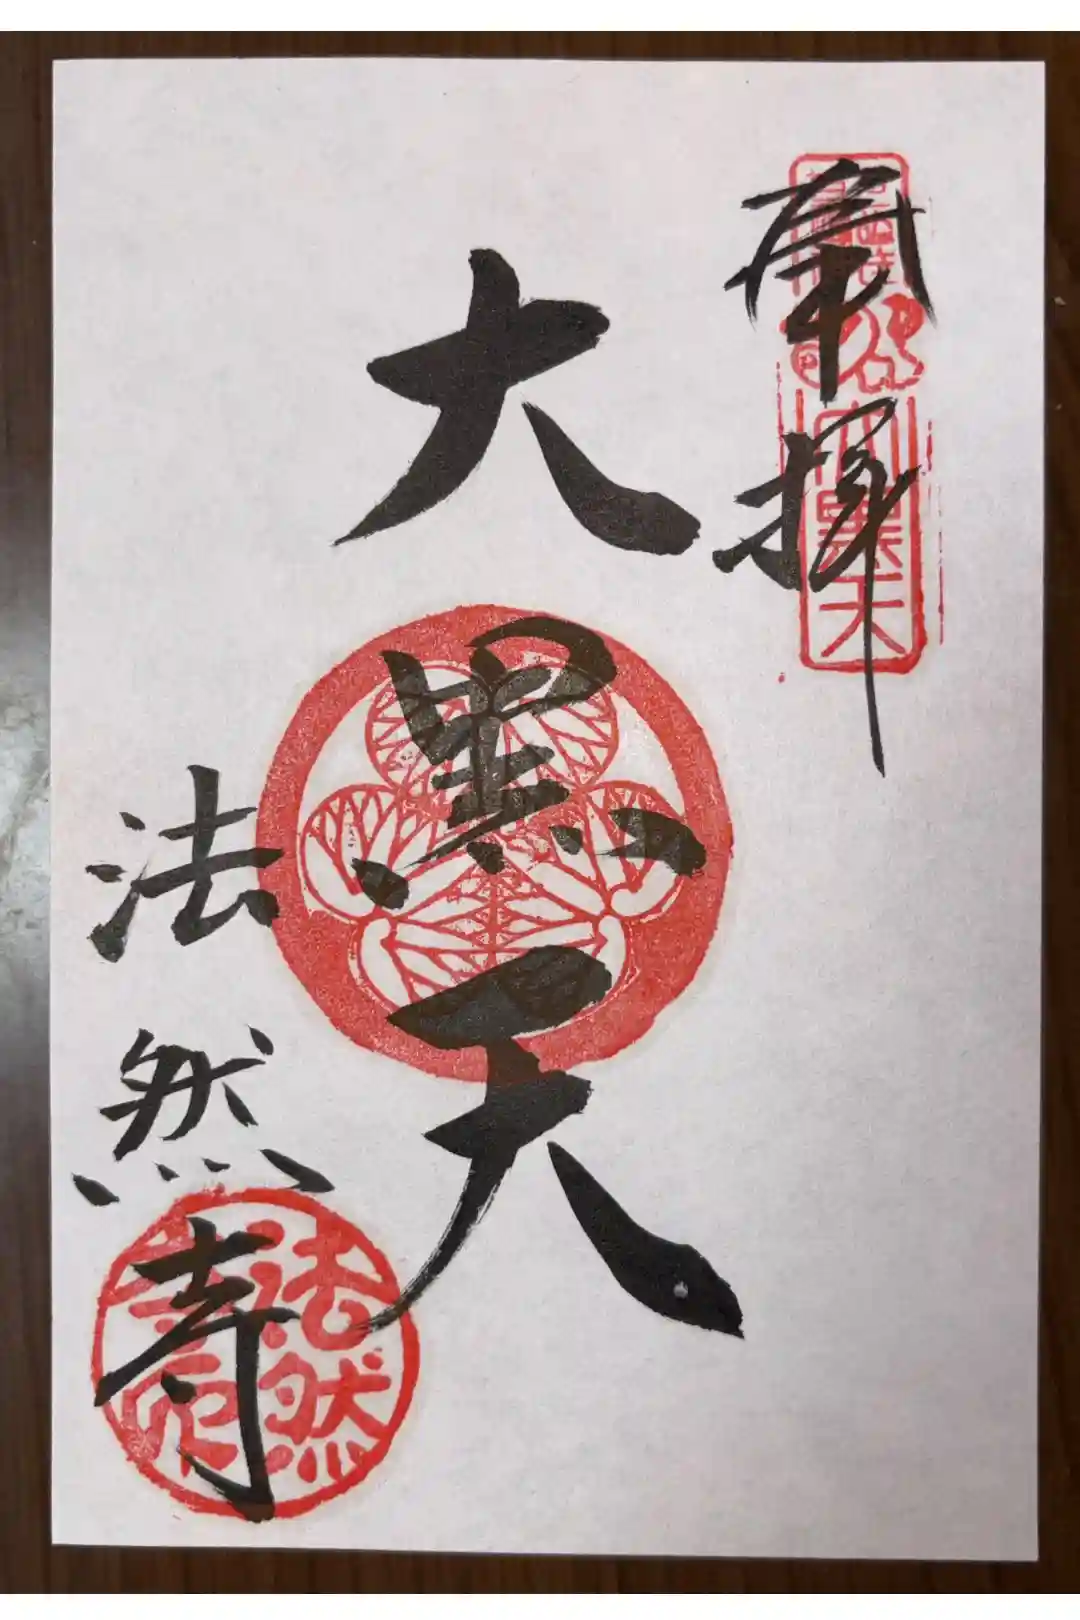 奉拝
大黒天
大黒天
法然寺
法然寺印